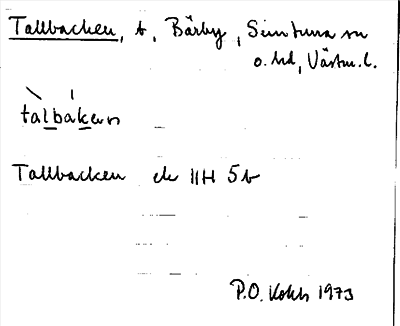 Tallbacken, t, Bärby, Simtuna sn
o. hd, Västm. l.
tàlbáken
Tallbacken ek 11H 5b
P.O. Kohls 1973